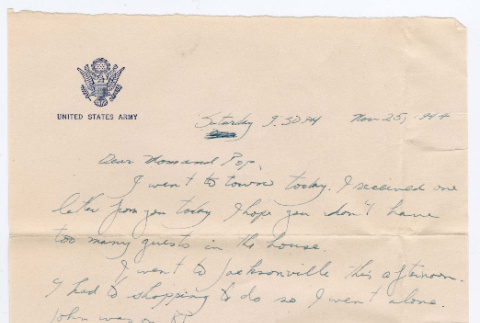 UNITED STATES ARMY
Saturday 9.30 PM Nov 25, 1944
Dear Mom and Pop,
I went to town today. I received one
letter from you today I hope you don't have
too many guests in the house.
I went to Jacksonville this afternoon.
I had to shopping to do so I went alone.
John was on KP